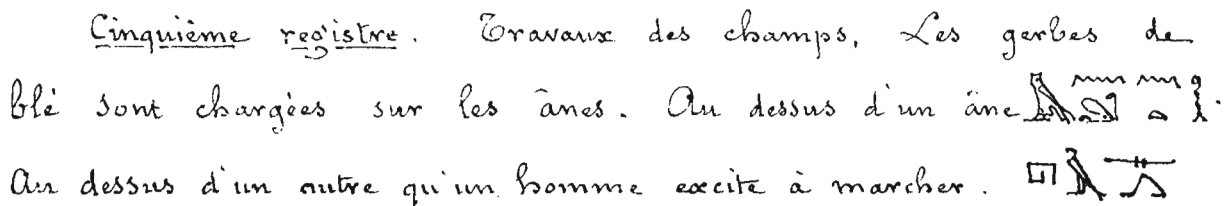 Cinquième registre. Travaux des champs, Les gerbes de
blé sont chargées sur les ânes. Au dessus d'un âne
Au dessus d'un autre qu'un homme excite à marcher.